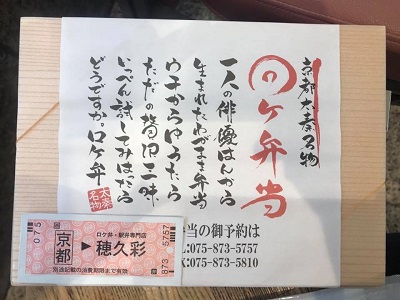 京都太秦名物
ロケ弁当
一人の俳優はんから
生まれたわがまま弁当
ウチからゆうたら
ただの箸休三昧
いっぺん試してみはったら
どうですか。ロケ弁
太秦名物
当の御予約は
L:075-873-5757
X:075-873-5810
075
京都
ロケ弁・駅弁専門店
▶穂久彩
別途記載の消費期限まで有効
873 5757